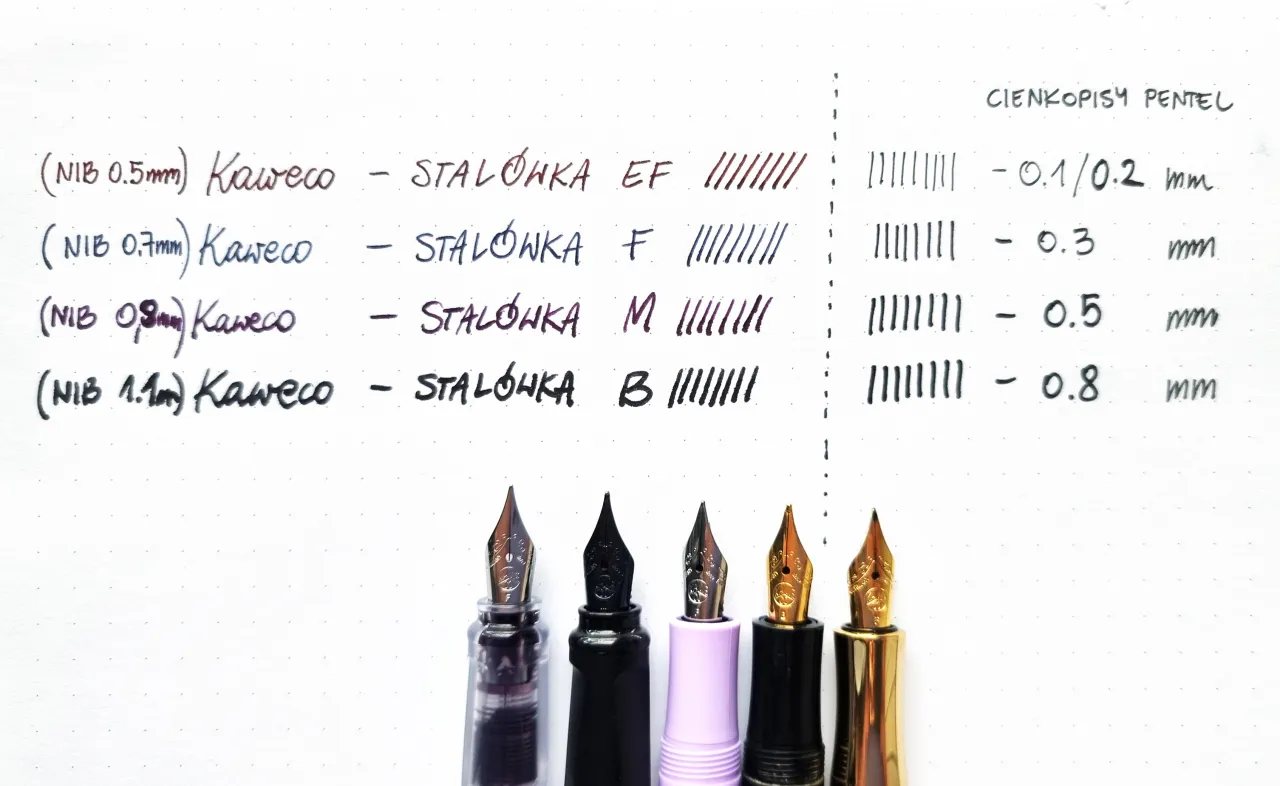 CIENKOPISY PENTEL
(NIB 0.5mm) Kaweco – STALÓWKA EF – 0.1/0.2 mm
(NIB 0.7mm) Kaweco – STALÓWKA F – 0.3 mm
(NIB 0,9mm) Kaweco – STALÓWKA M – 0.5 mm
(NIB 1.1m) Kaweco – STALÓWKA B – 0.8 mm
F